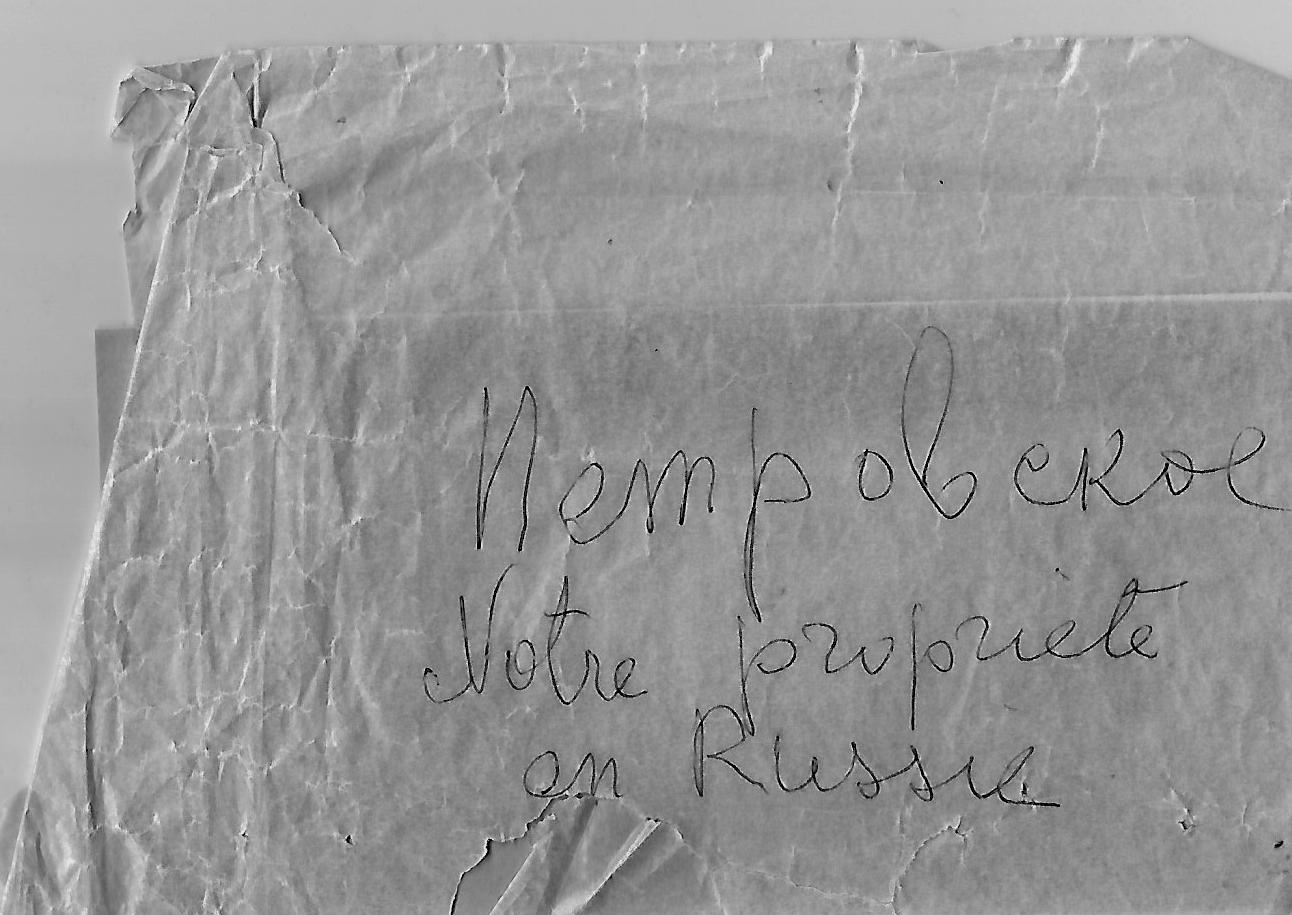 Петровское
Notre propriète
en Russie